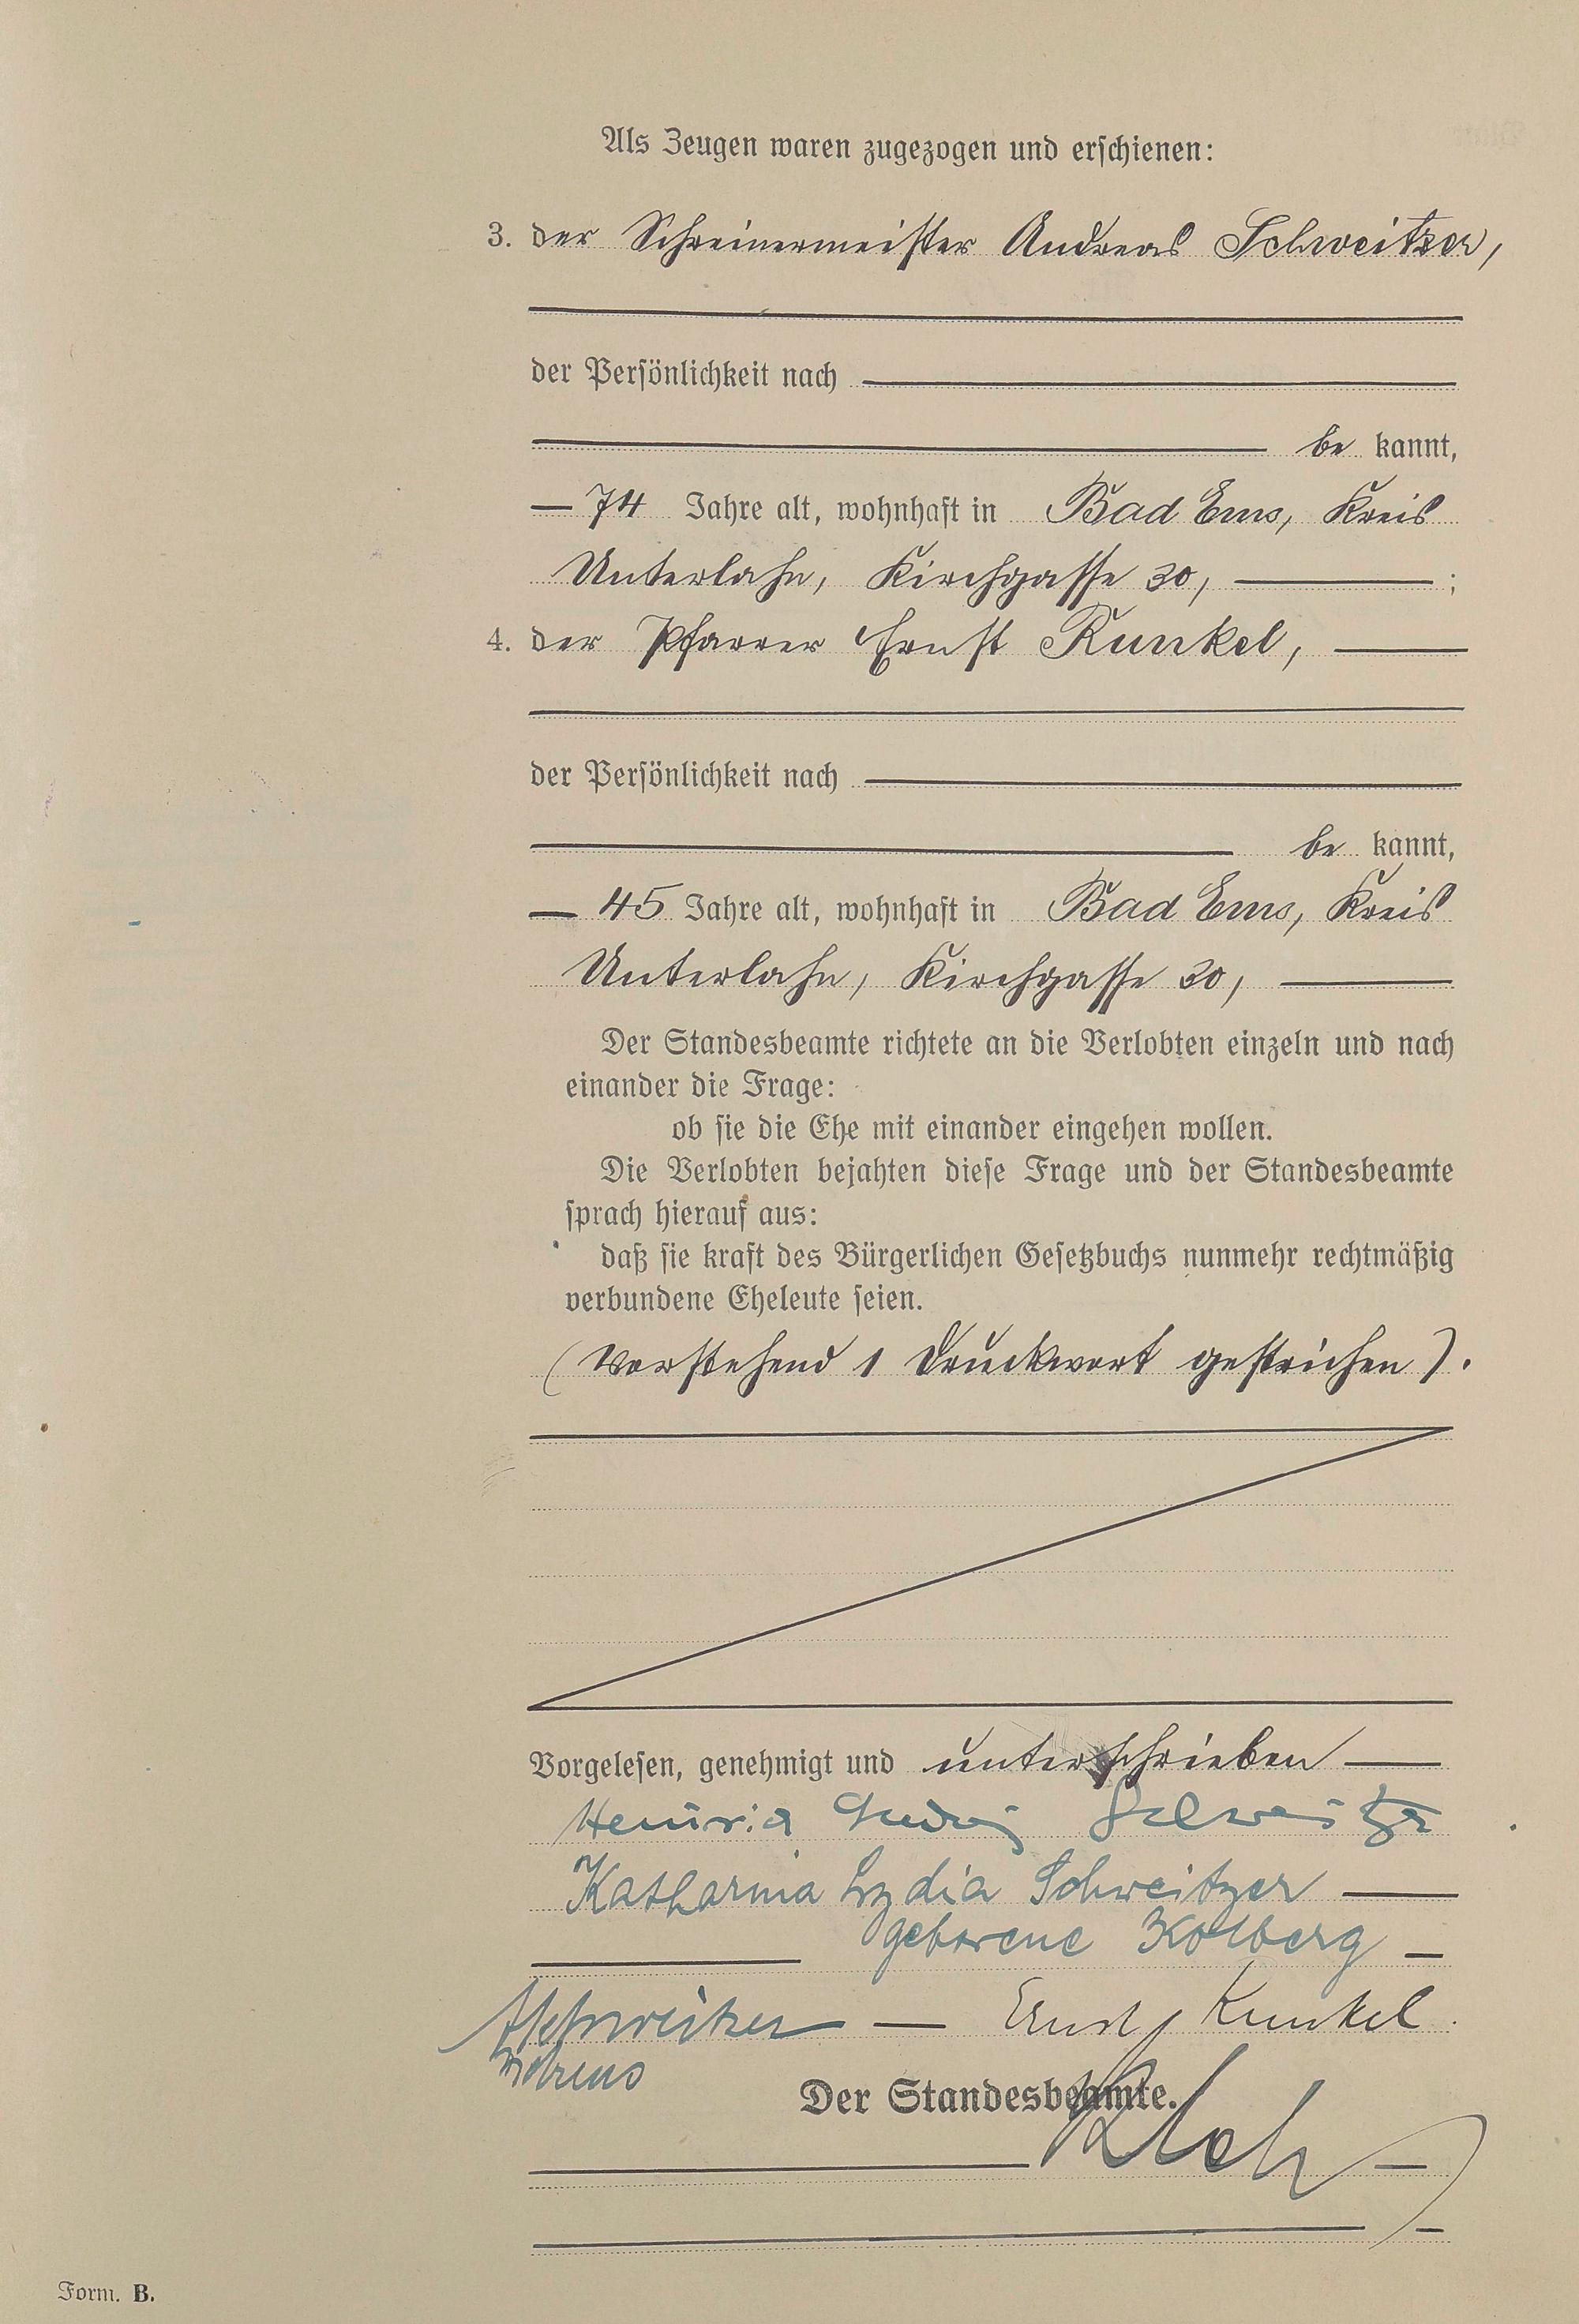 Als Zeugen waren zugezogen und erschienen:
3. der Schreinermeister Andreas Schweitzer,
der Persönlichkeit nach
be kannt,
74 Jahre alt, wohnhaft in Bad Ems, Kreis
Unterlahn, Kirchgasse 30, ;
4. der Pfarrer Ernst Kunkel,
der Persönlichkeit nach
be kannt,
45 Jahre alt, wohnhaft in Bad Ems, Kreis
Unterlahn, Kirchgasse 20,
Der Standesbeamte richtete an die Verlobten einzeln und nach
einander die Frage:
ob sie die Ehe mit einander eingehen wollen.
Die Verlobten bejahten diese Frage und der Standesbeamte
sprach hierauf aus:
daß sie kraft des Bürgerlichen Gesetzbuchs nunmehr rechtmäßig
verbundene Eheleute seien.
(Vorstehend 1 Druckwort gestrichen).
Vorgelesen, genehmigt und unterschrieben
Heinrich Ludwig Schweitzer
Katharina Lydia Schweitzer
geborene Kolberg
Schweitzer Ernst Kunkel
Der Standesbeamte.
Form. B.